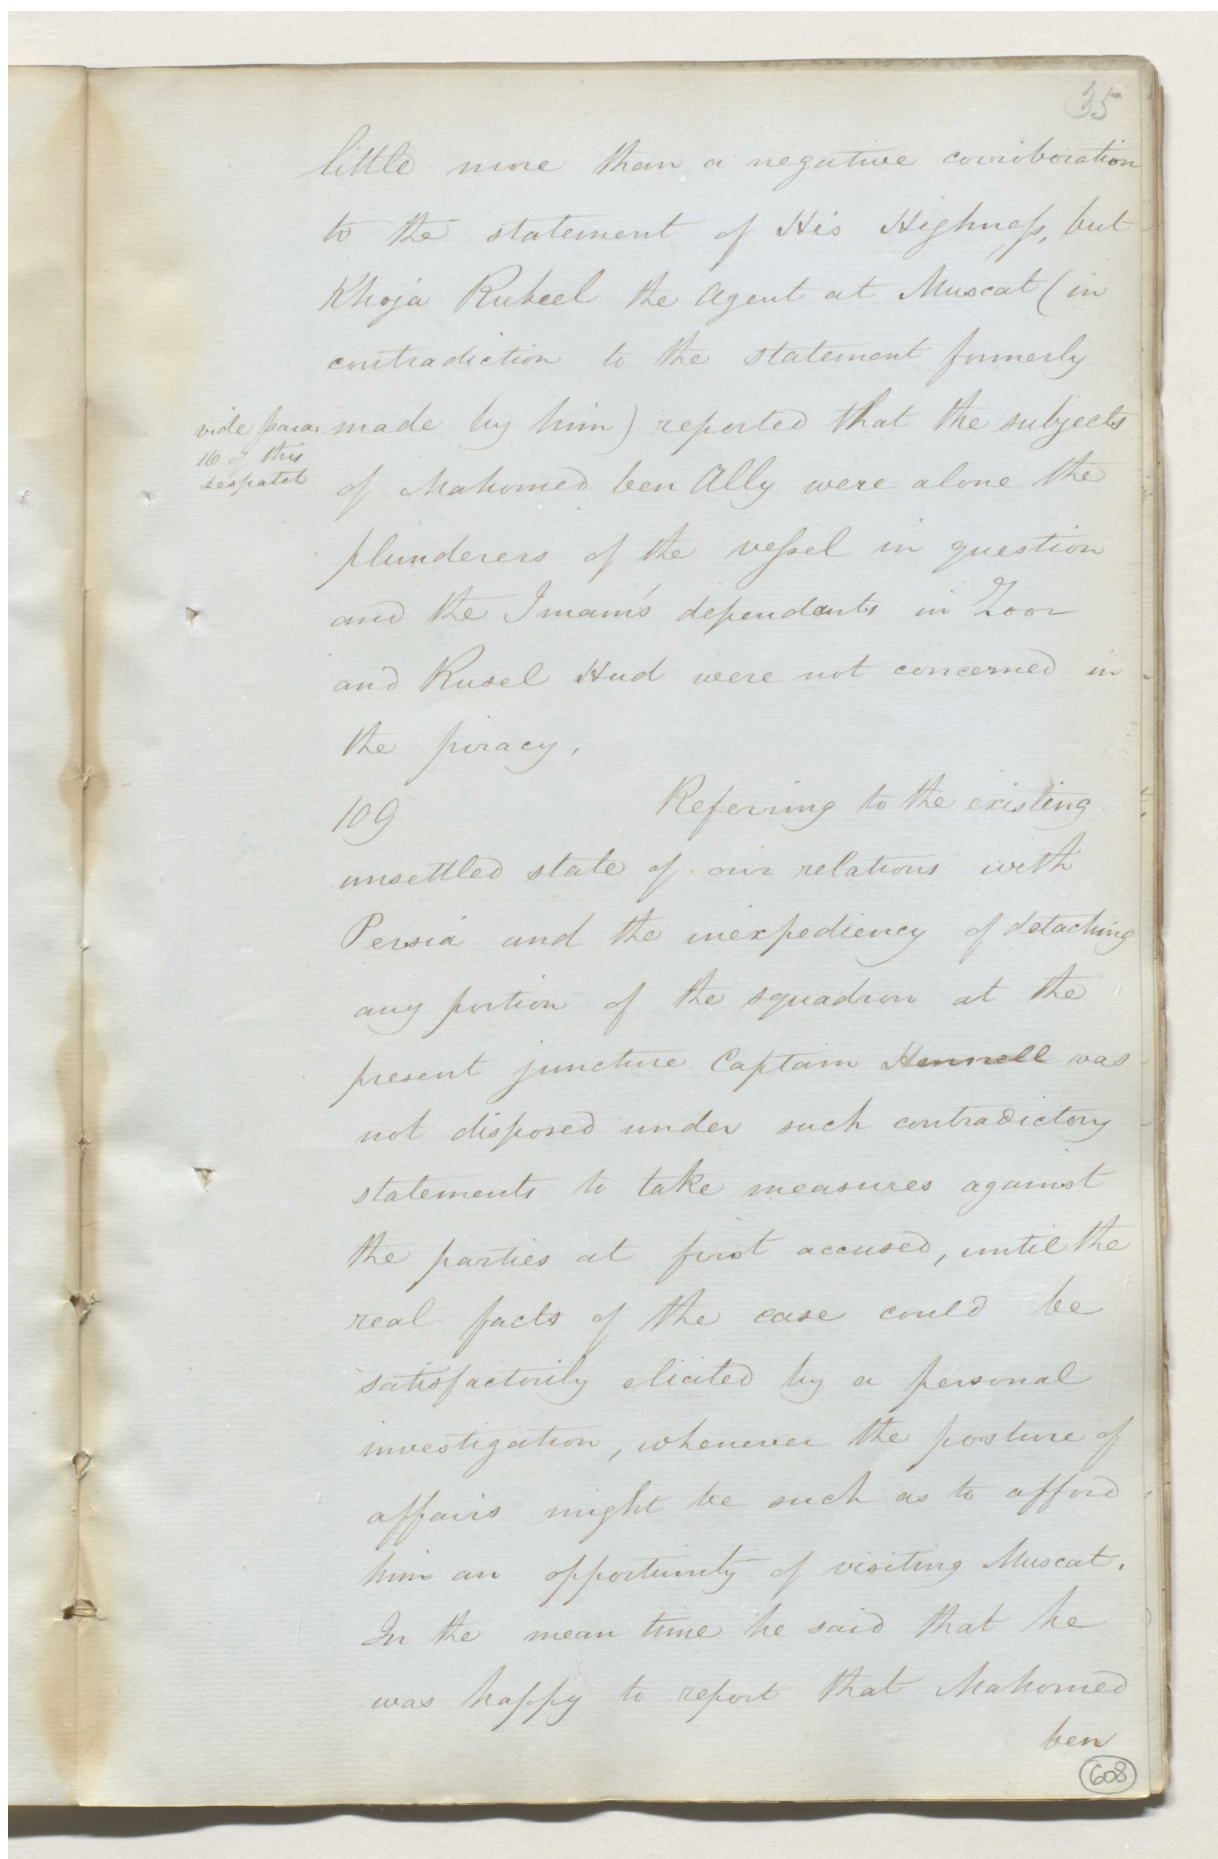 35
little more than a negative corroboration
to the statement of His Highness, but
Khoja Rubeel the Agent at Muscat (in
contradiction to the statement formerly
made by him) reported that the subjects
vide para
16 of this
despatch
of Mahomed ben Ally were alone the
plunderers of the vessel in question
and the Imam's dependants in Zoor
and Rusel Hud were not concerned in
the piracy.
109 Referring to the existing
unsettled state of our relations with
Persia and the inexpediency of detaching
any portion of the squadron at the
present juncture Captain Hennell was
not disposed under such contradictory
statements to take measures against
the parties at first accused, until the
real facts of the case could be
satisfactorily elicited by a personal
investigation, whenever the posture of
affairs might be such as to afford
him an opportunity of visiting Muscat.
In the mean time he said that he
was happy to report that Mahomed
ben
608